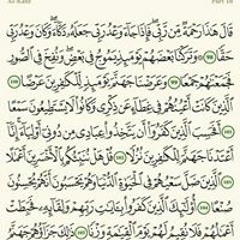 Al-Kahf Part 16
قَالَ هَٰذَا رَحْمَةٌ مِّن رَّبِّي ۖ فَإِذَا جَآءَ وَعْدُ رَبِّي جَعَلَهُۥ دَكَّآءَ ۖ وَكَانَ وَعْدُ رَبِّي
حَقًّا 98 ۞ وَتَرَكْنَا بَعْضَهُمْ يَوْمَئِذٍ يَمُوجُ فِي بَعْضٍ ۖ وَنُفِخَ فِي ٱلصُّورِ
فَجَمَعْنَٰهُمْ جَمْعًا 99 وَعَرَضْنَا جَهَنَّمَ يَوْمَئِذٍ لِّلْكَٰفِرِينَ عَرْضًا 100
ٱلَّذِينَ كَانَتْ أَعْيُنُهُمْ فِي غِطَآءٍ عَن ذِكْرِي وَكَانُوا۟ لَا يَسْتَطِيعُونَ سَمْعًا
101 أَفَحَسِبَ ٱلَّذِينَ كَفَرُوٓا۟ أَن يَتَّخِذُوا۟ عِبَادِي مِن دُونِيٓ أَوْلِيَآءَ ۚ إِنَّآ
أَعْتَدْنَا جَهَنَّمَ لِلْكَٰفِرِينَ نُزُلًا 102 قُلْ هَلْ نُنَبِّئُكُم بِٱلْأَخْسَرِينَ أَعْمَٰلًا
103 ٱلَّذِينَ ضَلَّ سَعْيُهُمْ فِي ٱلْحَيَوٰةِ ٱلدُّنْيَا وَهُمْ يَحْسَبُونَ أَنَّهُمْ يُحْسِنُونَ
صُنْعًا 104 أُو۟لَٰٓئِكَ ٱلَّذِينَ كَفَرُوا۟ بِـَٔايَٰتِ رَبِّهِمْ وَلِقَآئِهِۦ فَحَبِطَتْ